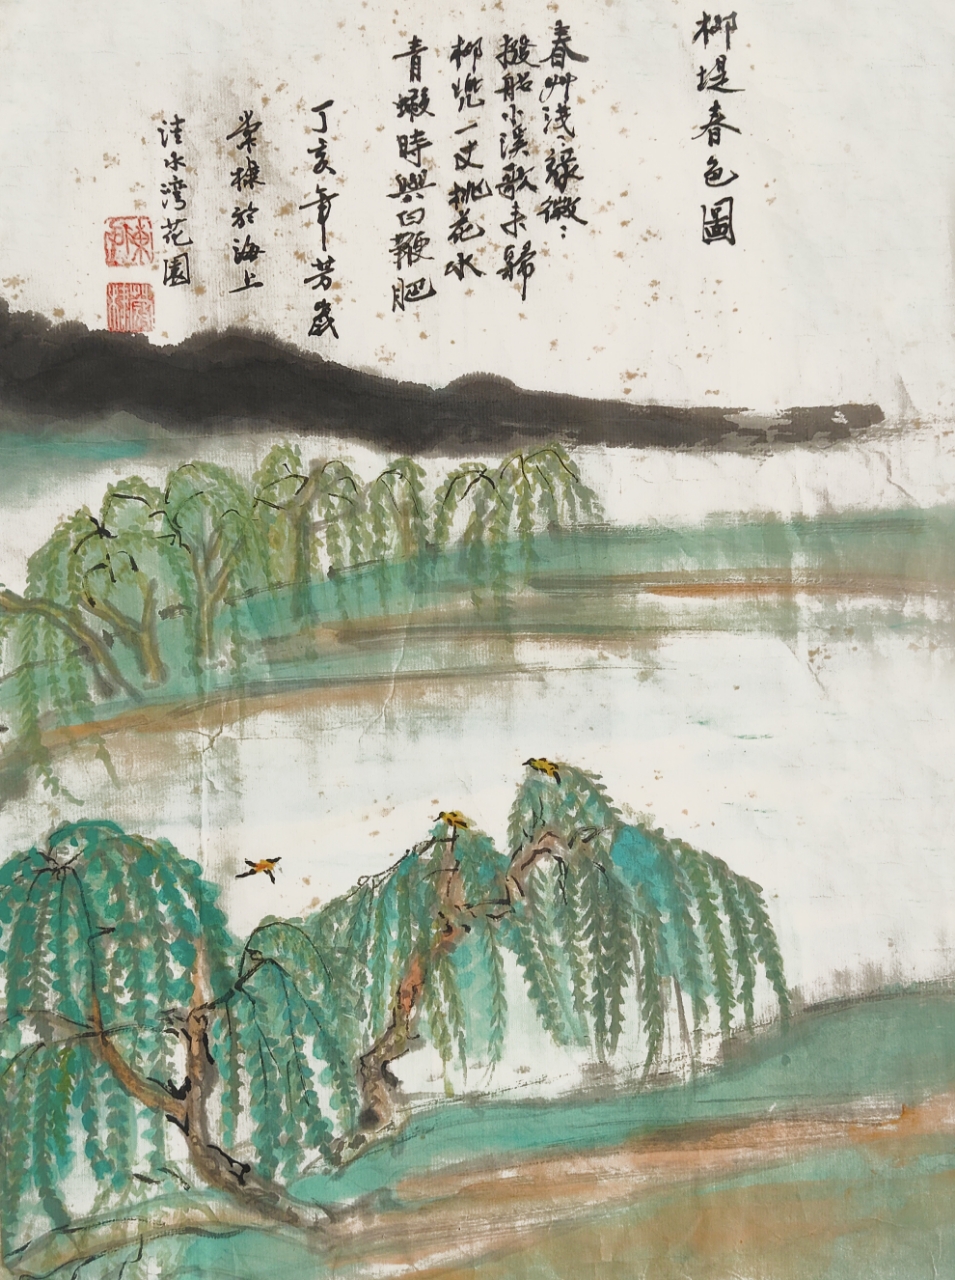 柳堤春色圖
春艸淺〻綠微〻
撥船小溪歌未歸
柳兜一丈桃花水
青蝦時與白鞭肥
丁亥年芳歲
棣於海上
清水湾花園